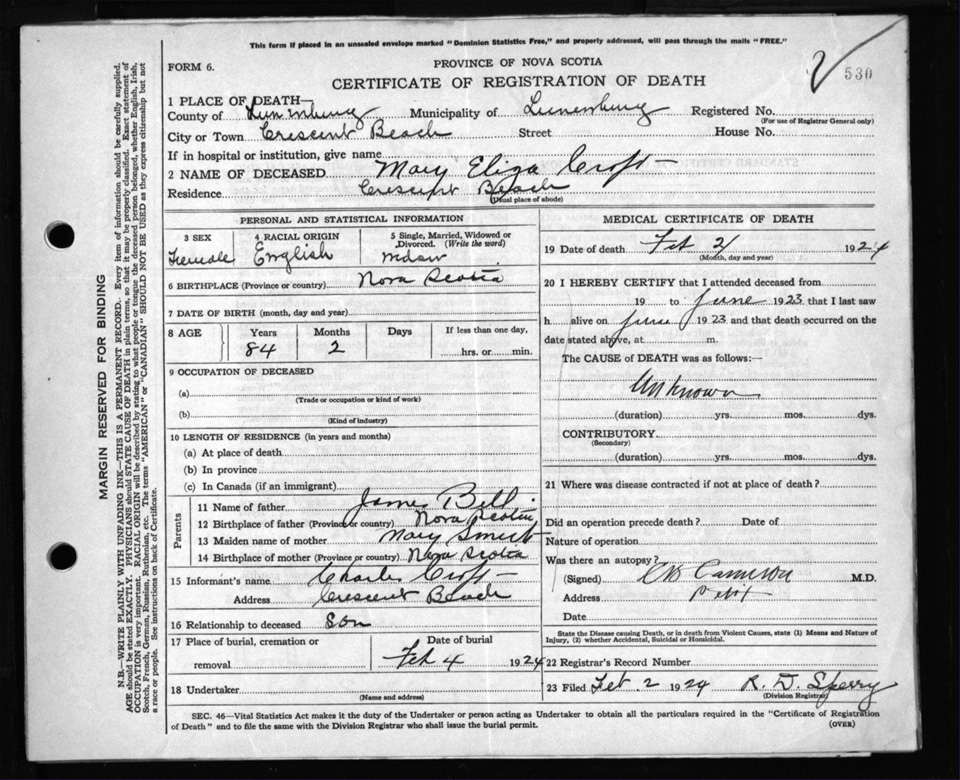 This form if placed in an unsealed envelope marked "Dominion Statistics Free," and properly addressed, will pass through the mails "FREE."
FORM 6.
PROVINCE OF NOVA SCOTIA
CERTIFICATE OF REGISTRATION OF DEATH
530
1 PLACE OF DEATH—
County of Lunenburg Municipality of Lunenburg Registered No.
(For use of Registrar General only)
City or Town Crescent Beach Street House No.
If in hospital or institution, give name
2 NAME OF DECEASED Mary Eliza Croft
Residence Crescent Beach
(Usual place of abode)
PERSONAL AND STATISTICAL INFORMATION
3 SEX Female
4 RACIAL ORIGIN English
5 Single, Married, Widowed or Divorced. (Write the word)
6 BIRTHPLACE (Province or country) Nova Scotia
7 DATE OF BIRTH (month, day and year)
8 AGE Years Months Days If less than one day,
84 2 hrs. or min.
9 OCCUPATION OF DECEASED
(a)
(Trade or occupation or kind of work)
(b)
(Kind of industry)
10 LENGTH OF RESIDENCE (in years and months)
(a) At place of death
(b) In province
(c) In Canada (if an immigrant)
Parents
11 Name of father James Bell
12 Birthplace of father (Province or country) Nova Scotia
13 Maiden name of mother Mary
14 Birthplace of mother (Province or country) Nova Scotia
15 Informant's name Charles Croft
Address Crescent Beach
16 Relationship to deceased Son
17 Place of burial, cremation or removal
Date of burial
Feb 4 1924
18 Undertaker
(Name and address)
MEDICAL CERTIFICATE OF DEATH
19 Date of death Feb 2 1924
(Month, day and year)
20 I HEREBY CERTIFY that I attended deceased from
19 to June 1923 that I last saw
h alive on June 1923 and that death occurred on
date stated above, at m.
The CAUSE of DEATH was as follows:—
Unknown
(duration) yrs. mos. dys.
CONTRIBUTORY
(Secondary)
(duration) yrs. mos. dys.
21 Where was disease contracted if not at place of death?
Did an operation precede death? Date of
Nature of operation
Was there an autopsy?
(Signed) Cameron M.D.
Address
Date
State the Disease causing Death, or in death from Violent Causes, state (1) Means and Nature of
Injury, (2) whether Accidental, Suicidal or Homicidal.
22 Registrar's Record Number
23 Filed Feb. 2 1924 R. D. Sperry
(Division Registrar)
SEC. 46—Vital Statistics Act makes it the duty of the Undertaker or person acting as Undertaker to obtain all the particulars required in the "Certificate of Registration
of Death" and to file the same with the Division Registrar who shall issue the burial permit.
(OVER)
MARGIN RESERVED FOR BINDING
N.B.—WRITE PLAINLY WITH UNFADING INK—THIS IS A PERMANENT RECORD. Every item of information should be carefully supplied.
AGE should be stated EXACTLY. PHYSICIANS should STATE CAUSE OF DEATH in plain terms, so that it may be properly classified. Exact statement of
OCCUPATION is very important. RACIAL ORIGIN will be described by stating to what people or tongue the deceased person belonged, whether English, Irish,
Scotch, French, German, Russian, Ruthenian, etc. The terms "AMERICAN" or "CANADIAN" SHOULD NOT BE USED as they express citizenship but not
a race or people. See instructions on back of Certificate.